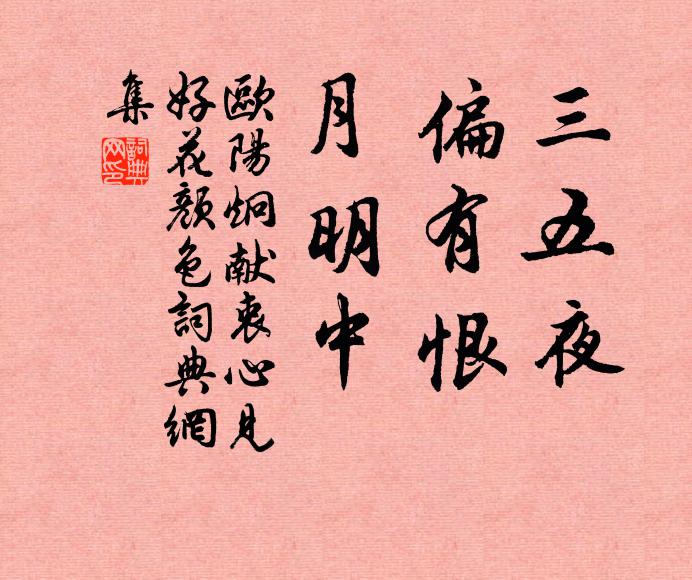 三五夜
偏有恨
月明中
歐陽炯献衷心見
好花顏色詞典網
集
詞典
网印